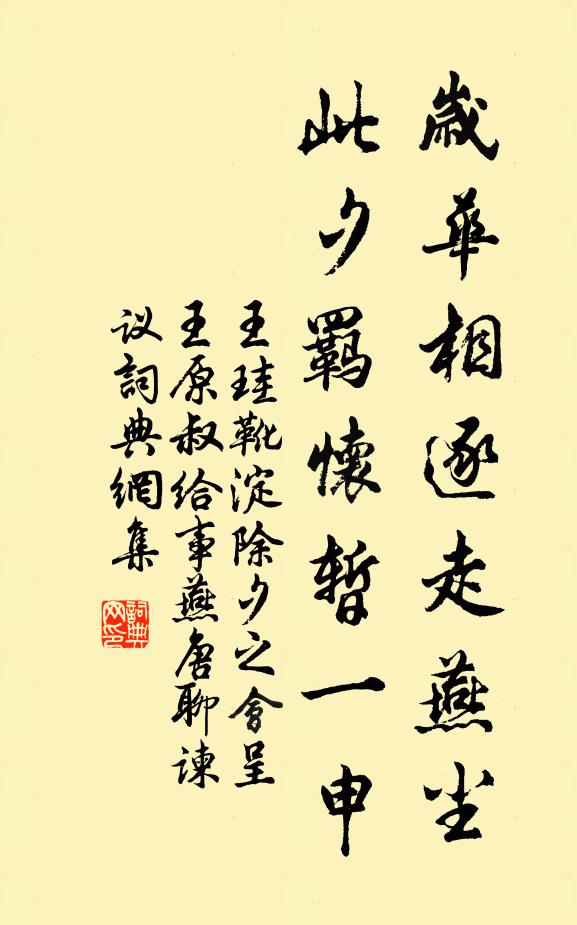 歲華相逐走燕尘
此夕羈懷暫一申
王珪靴淀除夕之會呈
王原叔给事燕唐聊谏
议詞典網集
詞典网印